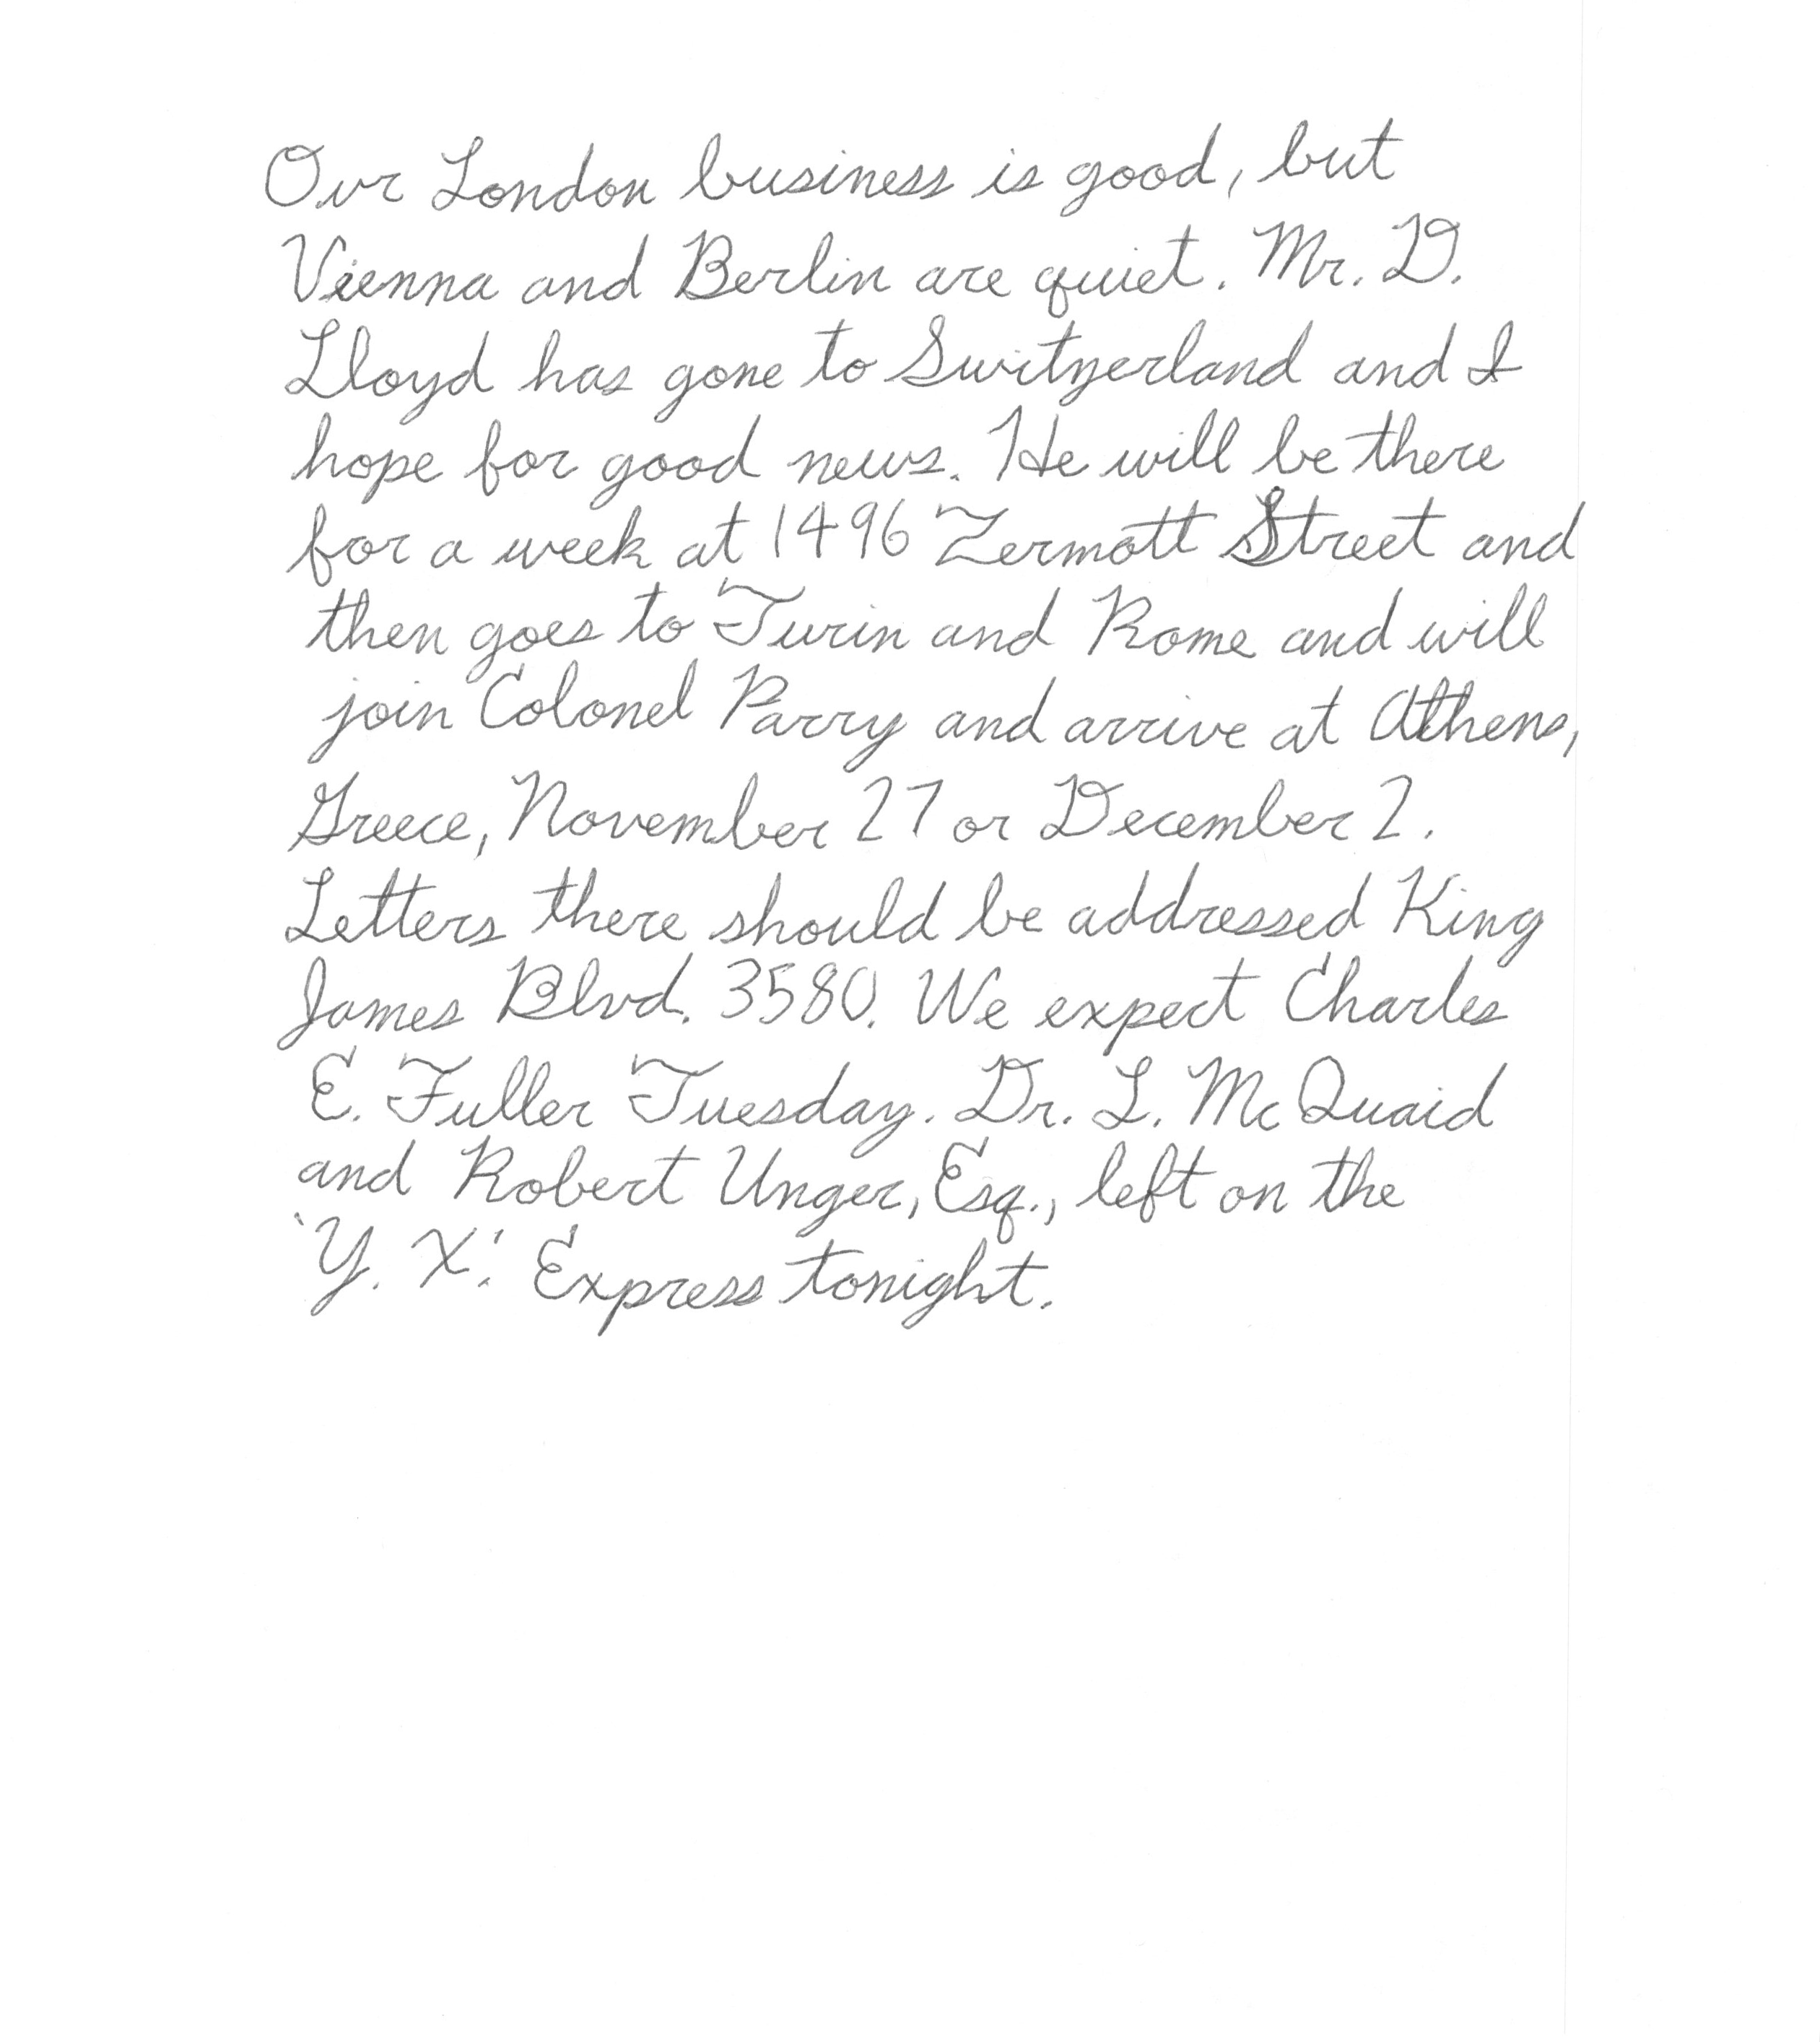 Our London business is good, but
Vienna and Berlin are quiet. Mr. D.
Lloyd has gone to Switzerland and I
hope for good news. He will be there
for a week at 1496 Zermott Street and
then goes to Turin and Rome and will
join Colonel Parry and arrive at Athens,
Greece, November 27 or December 2.
Letters there should be addressed King
James Blvd. 3580. We expect Charles
E. Fuller Tuesday. Dr. L. McQuaid
and Robert Unger, Esq., left on the
'Y. X.' Express tonight.